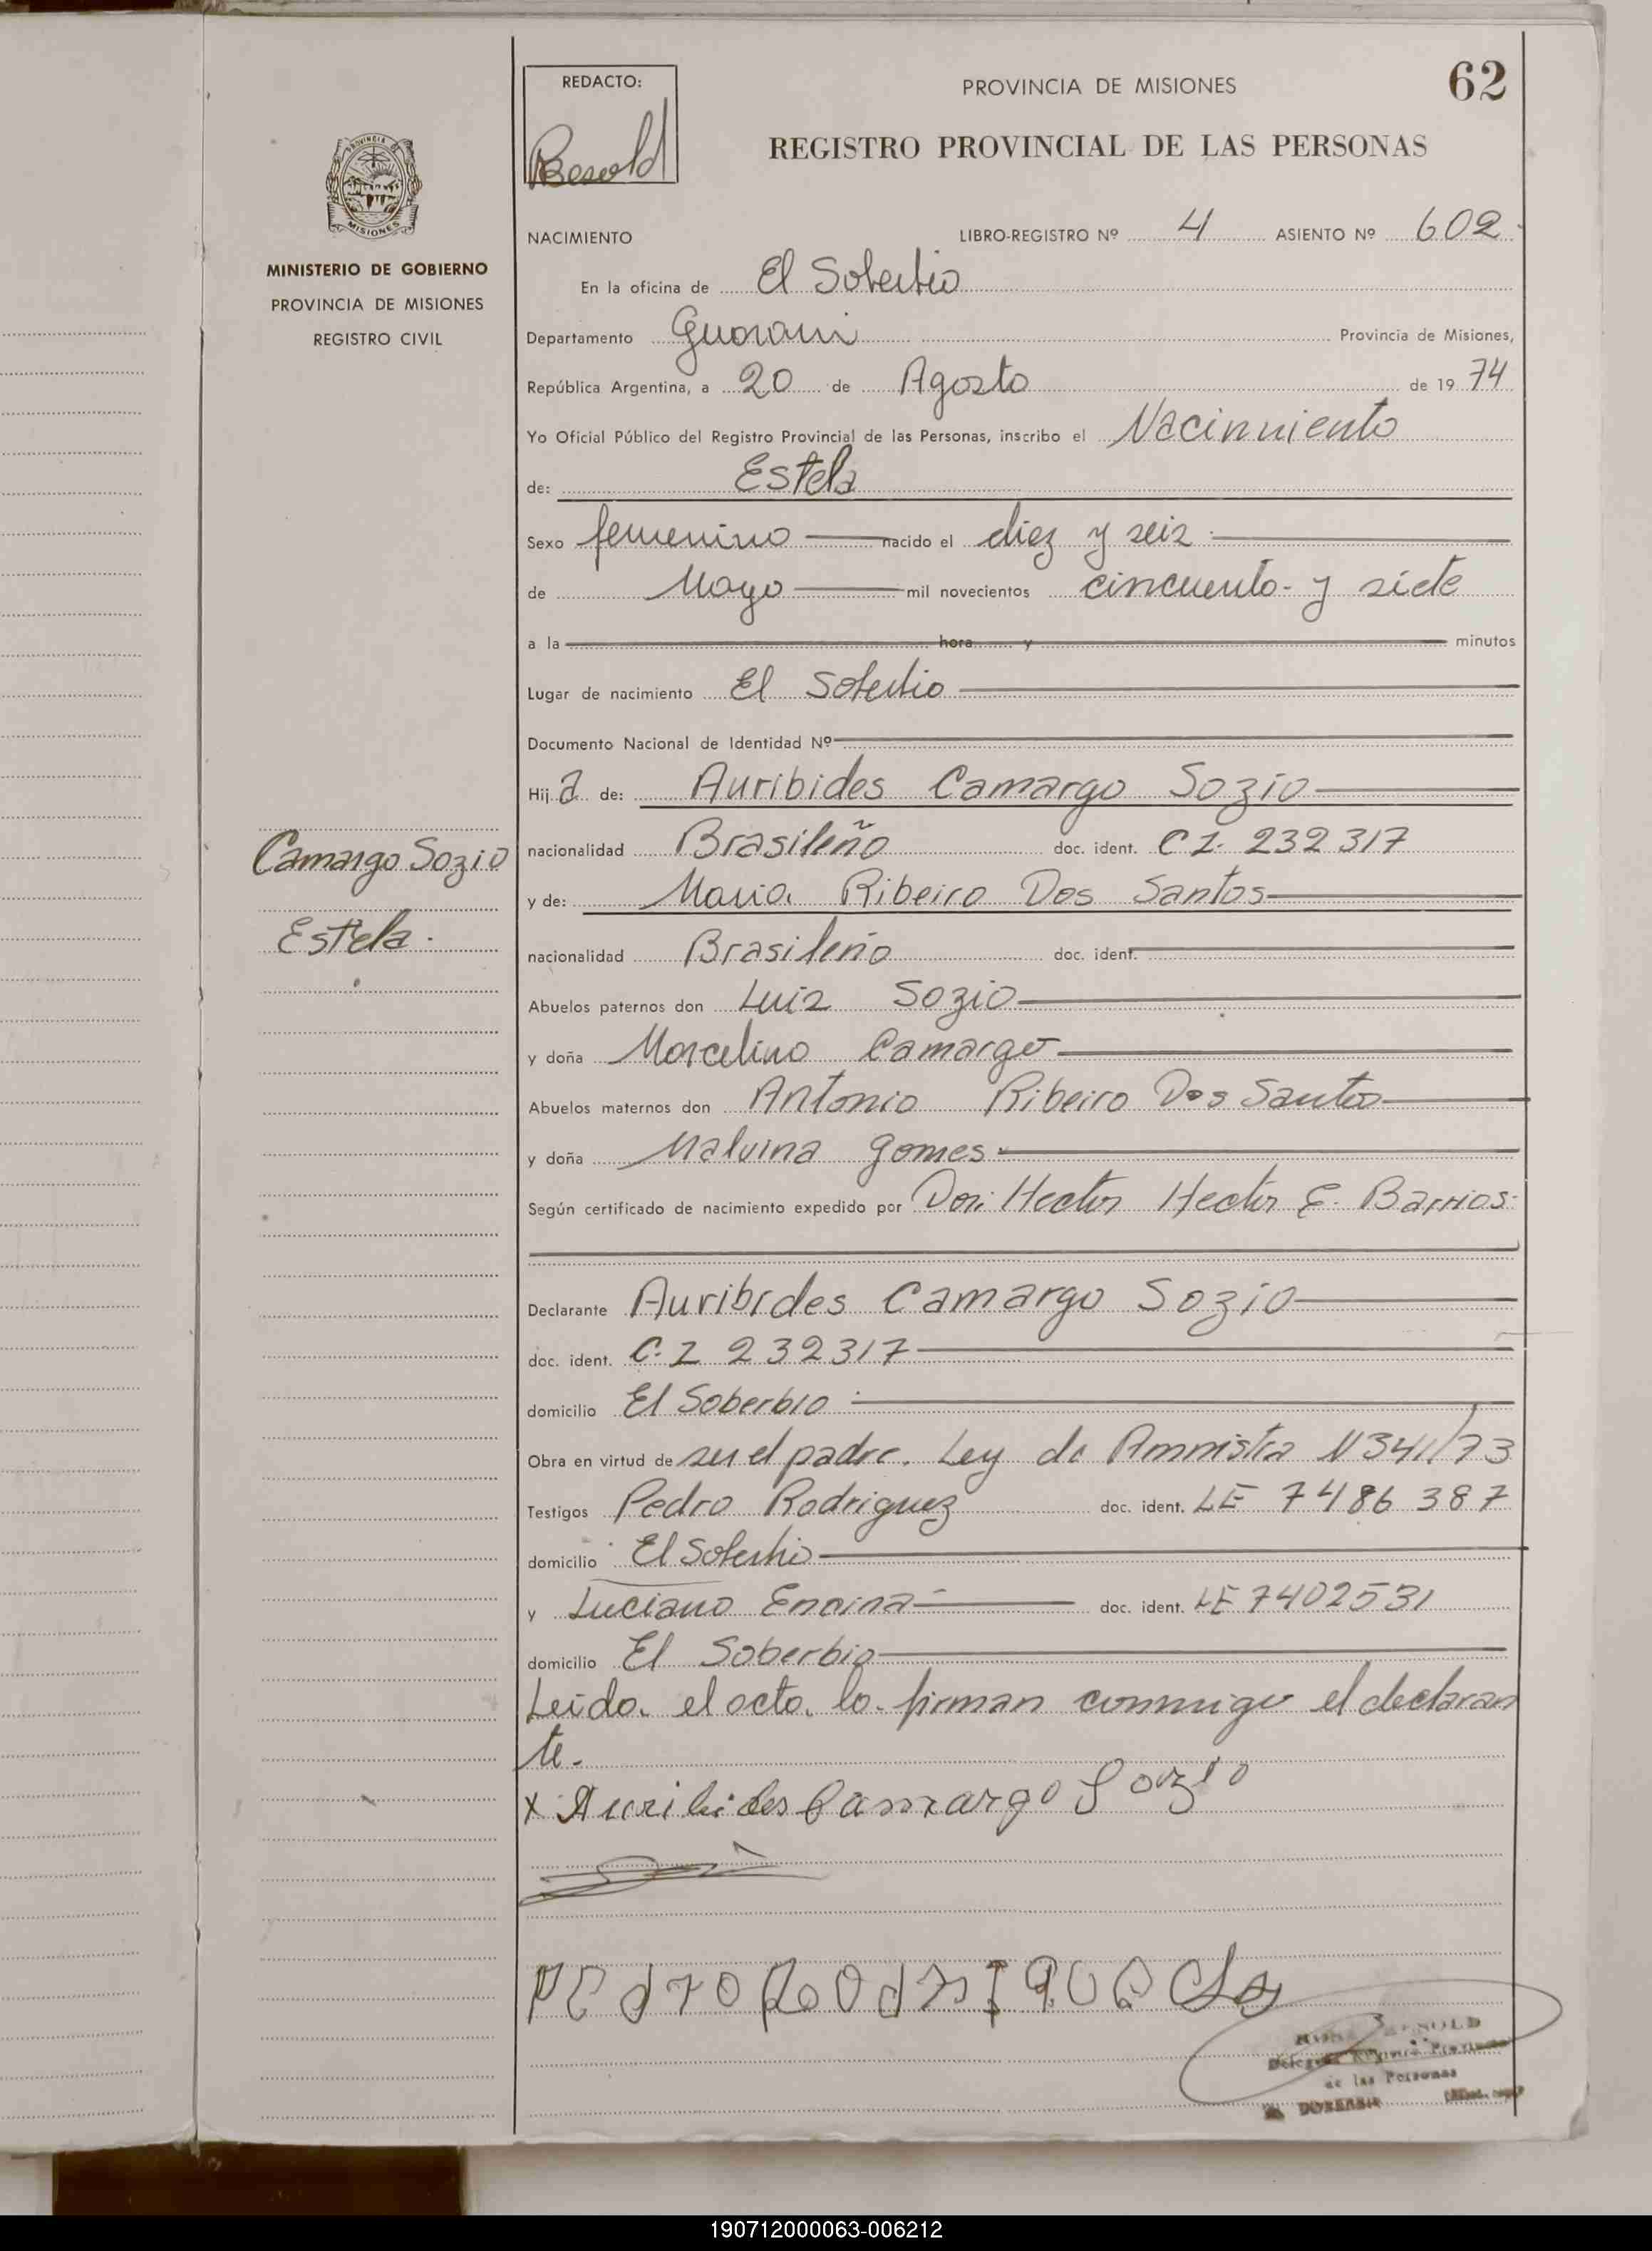 REDACTO:
Besold
PROVINCIA DE MISIONES
62
REGISTRO PROVINCIAL DE LAS PERSONAS
PROVINCIA DE
MISIONES
MINISTERIO DE GOBIERNO
PROVINCIA DE MISIONES
REGISTRO CIVIL
NACIMIENTO LIBRO-REGISTRO Nº 4 ASIENTO Nº 602
En la oficina de El Soberbio
Departamento Guarani Provincia de Misiones,
República Argentina, a 20 de Agosto de 19 74
Yo Oficial Público del Registro Provincial de las Personas, inscribo el Nacimiento
de: Estela
Sexo femenino nacido el diez y seis
de Mayo mil novecientos cincuenta y siete
a la hora y minutos
Lugar de nacimiento El Soberbio
Documento Nacional de Identidad Nº
Hij a de: Auribides Camargo Sozio
Camargo Sozio
Estela.
nacionalidad Brasileño doc. ident. C I. 232317
y de: Maria Ribeiro Dos Santos
nacionalidad Brasileña doc. ident.
Abuelos paternos don Luiz Sozio
y doña Marcelina Camargo
Abuelos maternos don Antonio Ribeiro Dos Santos
y doña Malvina Gomes
Según certificado de nacimiento expedido por Don: Hector Hector E. Barrios
Declarante Auribides Camargo Sozio
doc. ident. C. I 232317
domicilio El Soberbio
Obra en virtud de ser el padre. Ley de Amnistia N 341/73
Testigos Pedro Rodriguez doc. ident. LE 7486387
domicilio El Soberbio
y Luciano Encina doc. ident. LE 7402531
domicilio El Soberbio
Leida el acta lo firman conmigo el declaran
te.
x Auribides Camargo Sozio
de las Personas
190712000063-006212